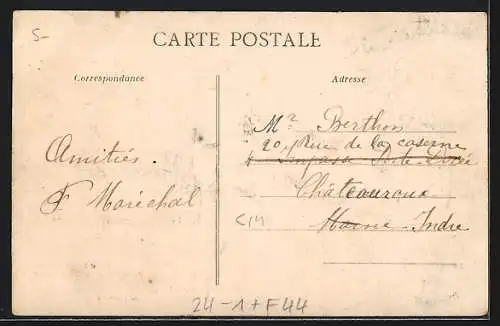 5-
CARTE POSTALE
Correspondance
Adresse
Mr Berthon
20, Rue de la caserne
4 Impasse
Amitiés.
Châteauroux
F Maréchal
C/14
Marne - Indre
24-1+F44